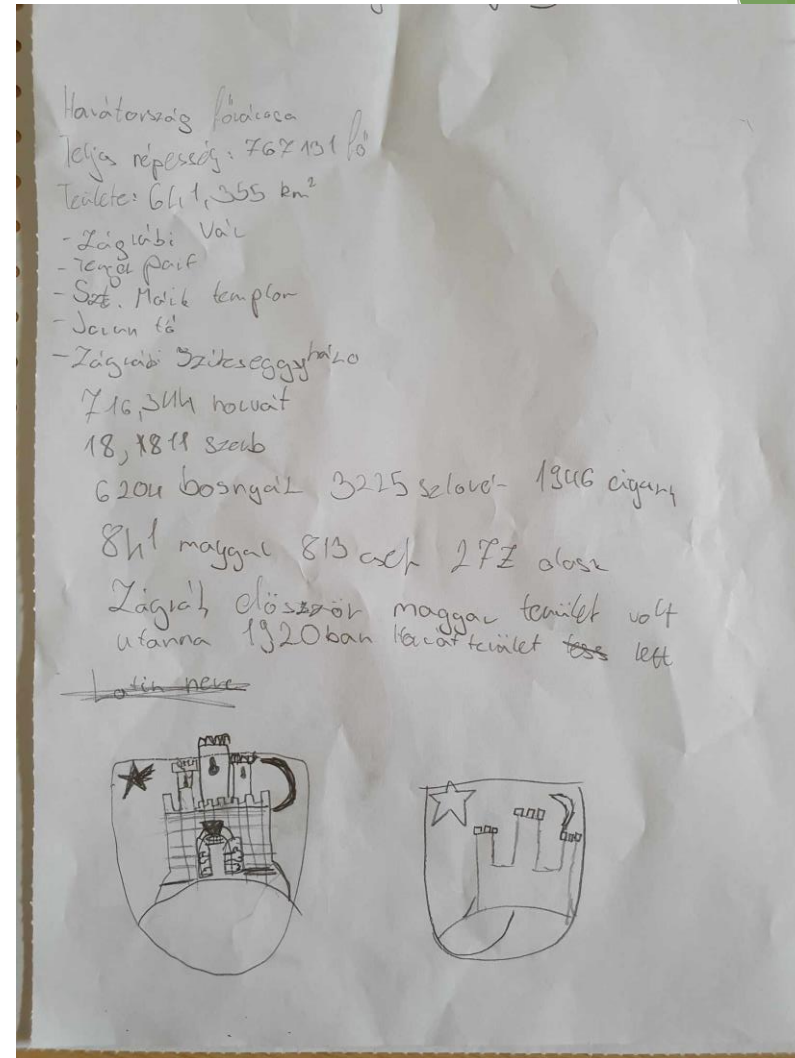 Havátország fővárosa
Teljas népesség: 767 131 fő
Teülete: 641,355 km²
- Zágrábi Vár
- Tenger part
- Szt. Márk templom
- Jarun tó
- Zágrábi Szükseggyházo
716,344 horvát
18,1811 szerb
6204 bosnyák 3225 szlové- 1946 cigany
841 maggar 813 cseh 277 olasz
Zágráb először maggar terület volt
utanna 1920ban Horvát terület lett
Latin neve